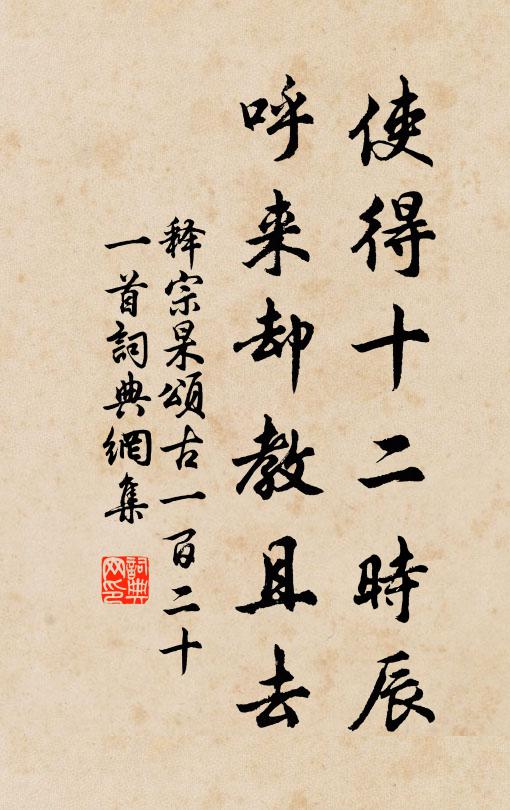 使得十二時辰
呼来却教且去
释宗杲頌古一百二十
一首詞典網集
詞典网印